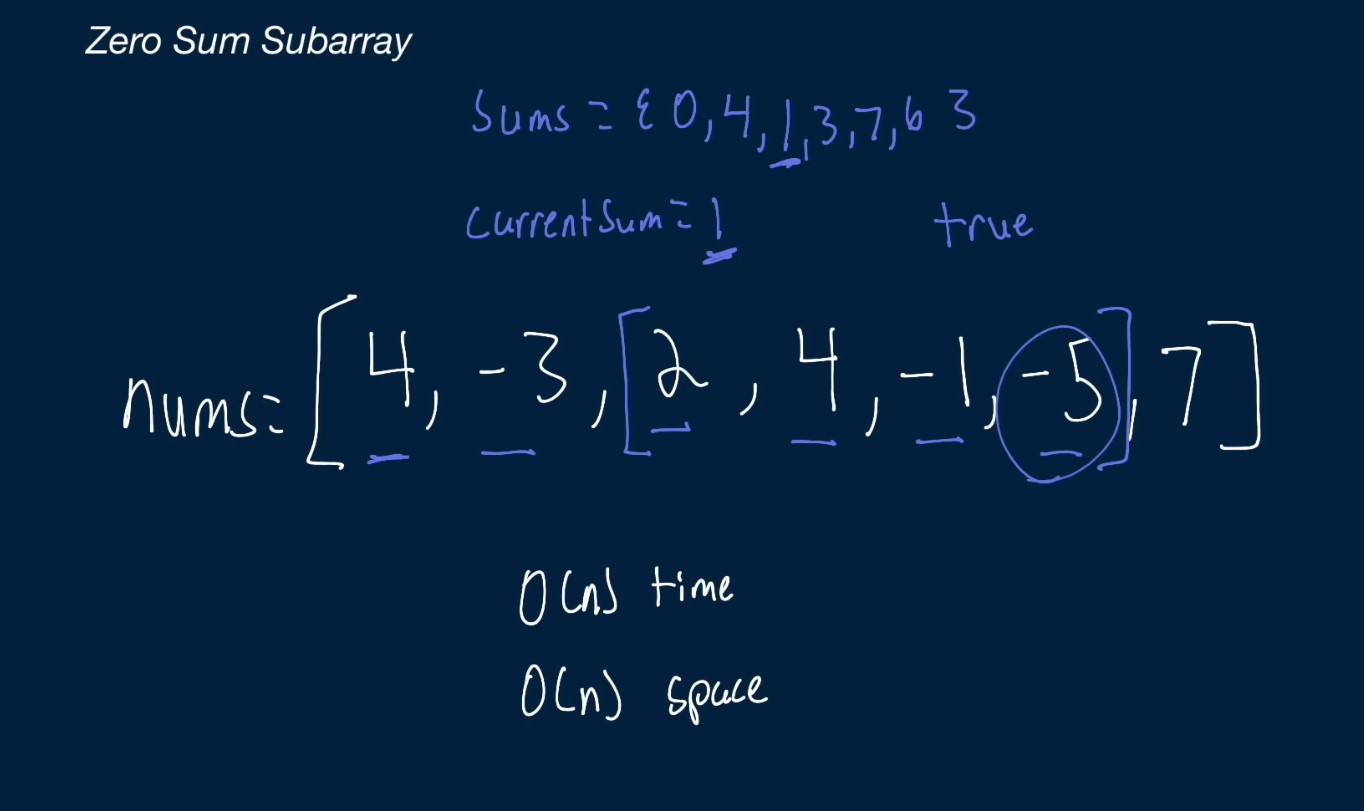 Zero Sum Subarray
Sums = { 0, 4, 1, 3, 7, 6 }
currentSum = 1 true
nums = [4, -3, [2, 4, -1, -5], 7]
O(n) time
O(n) space